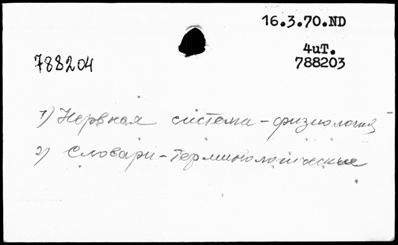 16.3.70.ND
4иТ.
788204
788203
1) Нервная система - физиология
2) Словари - терминологические